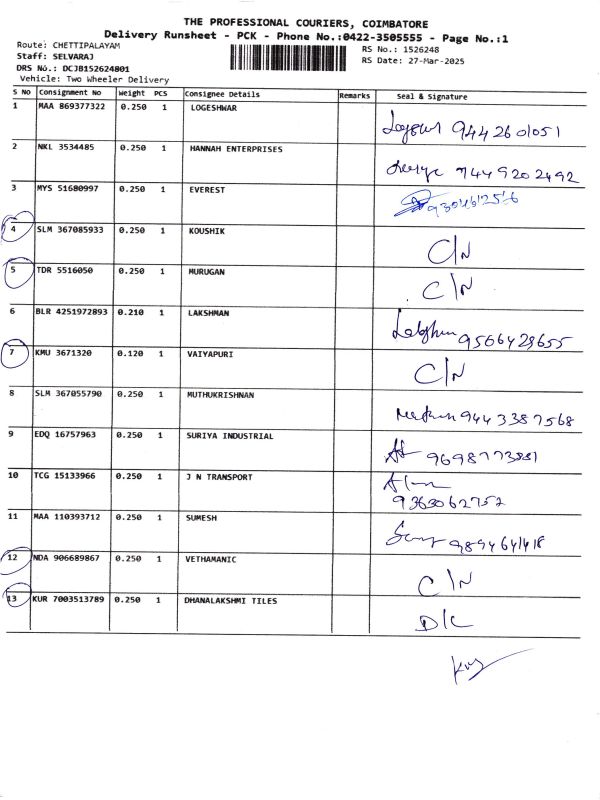 THE PROFESSIONAL COURIERS, COIMBATORE
Delivery Runsheet - PCK - Phone No.:0422-3505555 - Page No.:1
Route: CHETTIPALAYAM RS No.: 1526248
Staff: SELVARAJ RS Date: 27-Mar-2025
DRS No.: DCJB152624801
Vehicle: Two Wheeler Delivery
S No Consignment No Weight PCS Consignee Details Remarks Seal & Signature
1 MAA 869377322 0.250 1 LOGESHWAR 9442601051
2 NKL 3534485 0.250 1 HANNAH ENTERPRISES 7449202492
3 MYS 51680997 0.250 1 EVEREST
4 SLM 367085933 0.250 1 KOUSHIK C/N
5 TDR 5516050 0.250 1 MURUGAN C/N
6 BLR 4251972893 0.210 1 LAKSHMAN 9566428655
7 KMU 3671320 0.120 1 VAIYAPURI C/N
8 SLM 367055790 0.250 1 MUTHUKRISHNAN 9443387568
9 EDQ 16757963 0.250 1 SURIYA INDUSTRIAL
10 TCG 15133966 0.250 1 J N TRANSPORT
9363062752
11 MAA 110393712 0.250 1 SUMESH
12 NDA 906689867 0.250 1 VETHAMANIC C/N
13 KUR 7003513789 0.250 1 DHANALAKSHMI TILES D/C